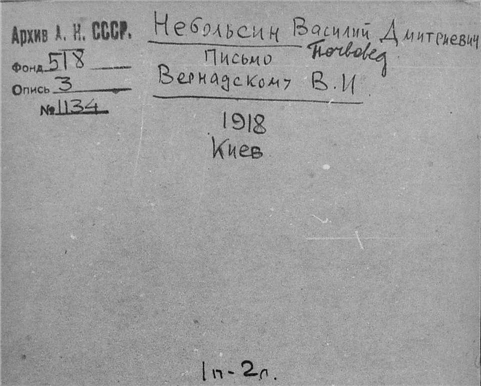 Архив А. Н. СССР.
Фонд 518
Опись 3
№ 1134
Небольсин Василий Дмитриевич
Почвовед
Письмо
Вернадскому В. И
1918
Киев
1п-2л.